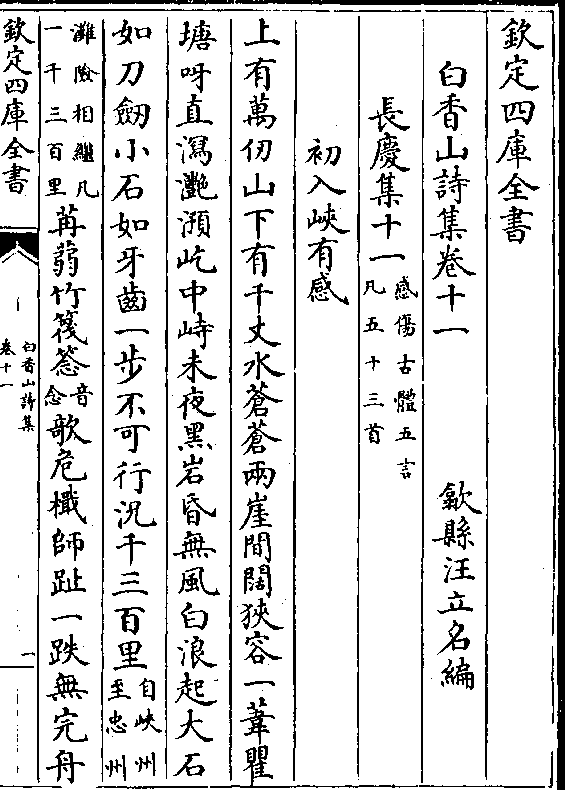 欽定四庫全書
白香山詩集卷十一
歙縣汪立名編
長慶集十一
感傷古體五言
凡五十三首
初入峽有感
上有萬仞山下有千丈水蒼蒼兩崖間闊狹容一葦瞿
塘呀直瀉灔澦屹中峙未夜黑岩昏無風白浪起大石
如刀劒小石如牙齒一步不可行況千三百里
自峽州
至忠州
灘險相繼凡
一千三百里
苒蒻竹篾䉞
音
念
欹危檝師趾一跌無完舟
欽定四庫全書
白香山詩集
卷十一
一